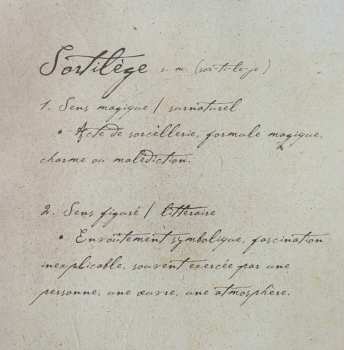 Sortilège n. m. (sor-ti-lè-je)
1. Sens magique / surnaturel
• Acte de sorcellerie, formule magique,
charme ou malédiction.
2. Sens figuré / littéraire
• Envoûtement symbolique, fascination
inexplicable, souvent exercée par une
personne, une œuvre, une atmosphère.